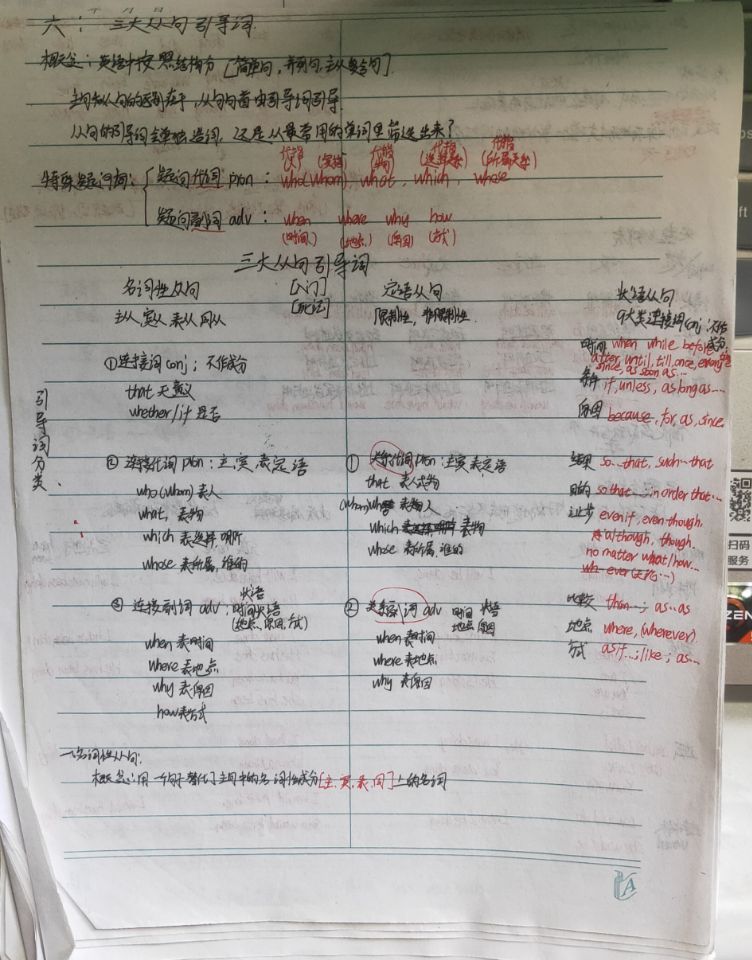 六： 三大从句引导词
概念：英语中按照结构分 [简单句，并列句，主从复合句].
主句和从句的区别在于，从句句首由引导词引导.
从句的引导词会单独造词，还是从最常用的单词里筛选出来？
代替 代替 代替 代替
(宾格) (选择关系) (所属关系)
特殊疑问词： 疑问代词 pron： who(whom), what, which, whose
疑问副词 adv： when where why how
(时间) (地点) (原因) (方式)
三大从句引导词
名词性从句 [入门] 定语从句 状语从句
主从 宾从 表从 同从 限制性，非限制性. 9大类连接词conj；不作成分
引导词分类
① 连接词conj； 不作成分
that 无意义
whether/if 是否
② 连接代词 pron：主，宾，表，定语
who(whom)表人
what, 表物
which 表选择 哪个
whose 表所属，谁的
③ 连接副词 adv：状语
时间状语
(地点，原因，方式)
when 表时间
where 表地点
why 表原因
how表方式
① 关系代词pron：主宾表定语
that 表人或物
(whom)who 表人
which 表物
whose 表所属，谁的
② 关系副词 adv 时间 状语
地点 原因
when 表时间
where 表地点
why 表原因
时间 when while before
after, until, till, once, every
since, as soon as...
条件 if, unless, as long as......
原因 because, for, as, since.
结果 so...that, such...that
目的 so that......, in order that...
让步 even if, even though,
although, though.
no matter what/how...
wh-ever(无论...)
比较 than...; as..as
地点 where, (wherever)
方式 as if...; like; as...
一.名词性从句：
概念：用一个句子替代了主句中的名词性成分[主，宾，表，同]上的名词
扫码
服务
ZEN